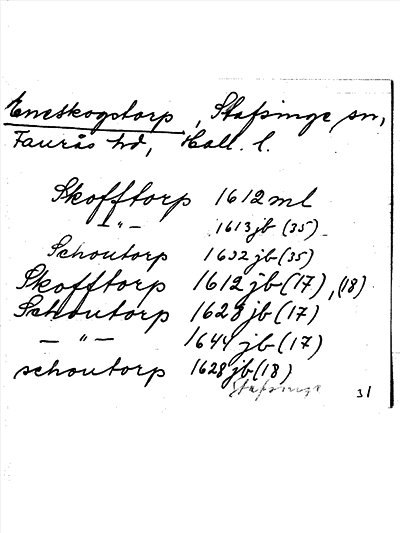 Eneskogstorp, Stafsinge sn,
Faurås hd, Hall. l.
Skofftorp 1612 ml
— " — 1613 jb (35)
Schoutorp 1632 jb (35)
Skofftorp 1612 jb (17), (18)
Schoutorp 1628 jb (17)
— " — 1644 jb (17)
schoutorp 1628 jb (18)
Stafsinge 31